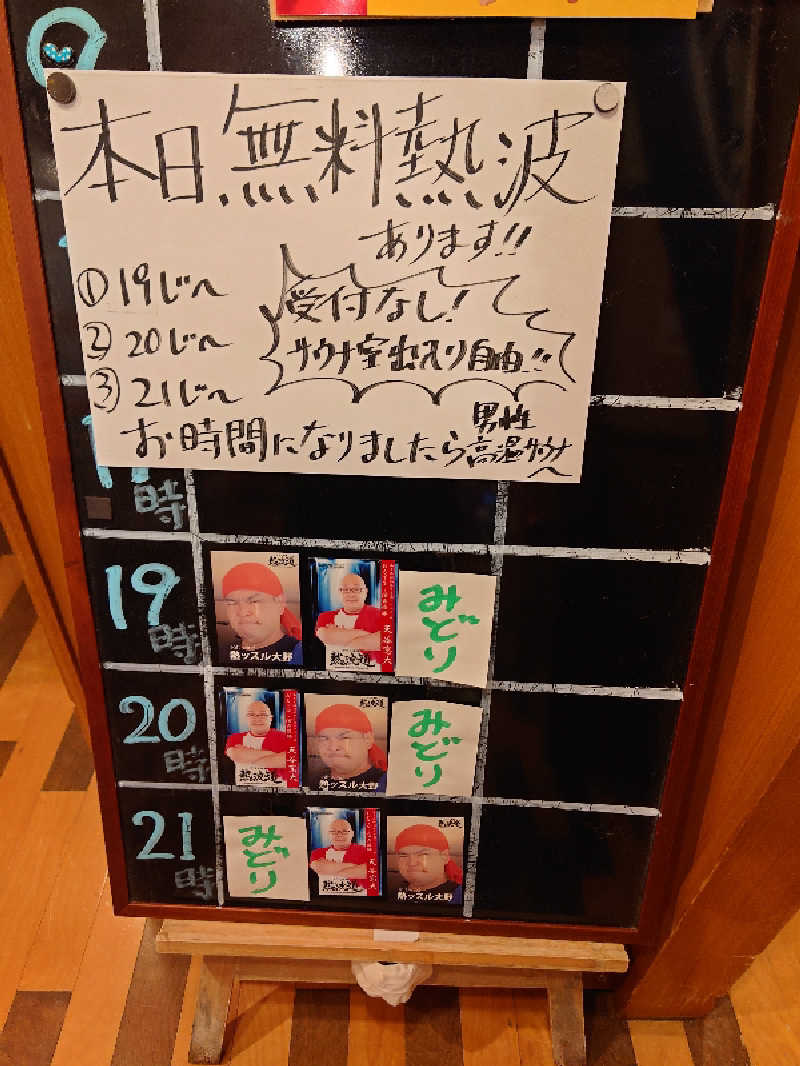 本日無料熱波
あります!!
① 19じ〜
② 20じ〜
③ 21じ〜
受付なし!
サウナ室出入り自由!!
お時間になりましたら男性高温サウナへ
時
19時
熱ッスル大野
熱波道
みどり
20時
熱波道
熱ッスル大野
みどり
21時
みどり
熱波道
熱ッスル大野